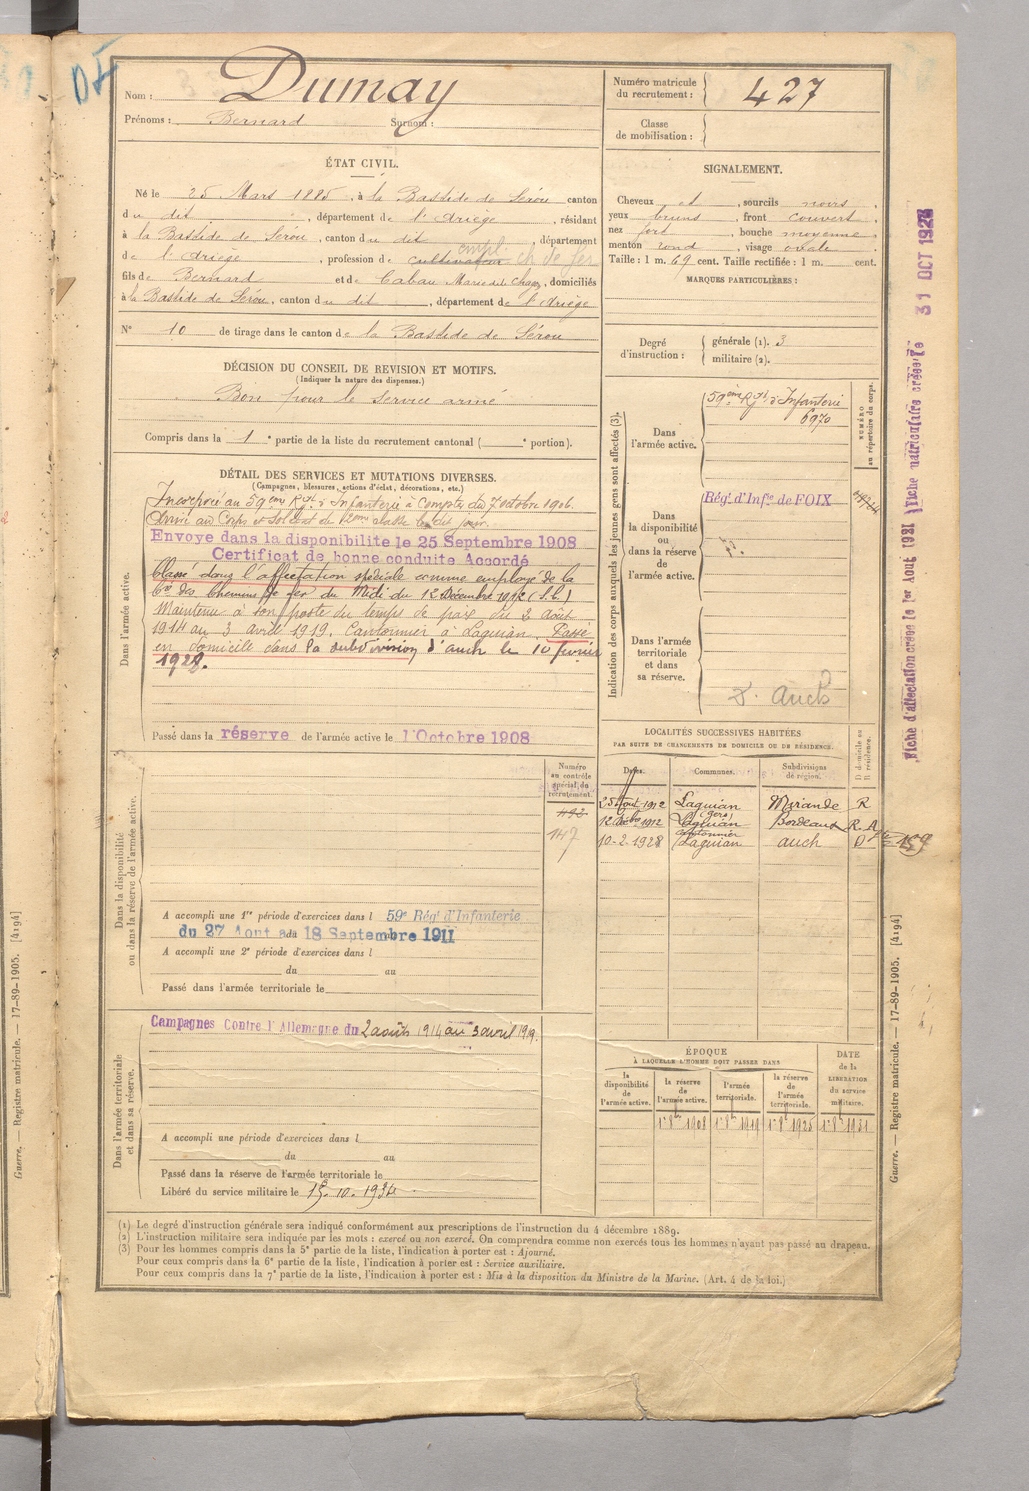 Nom : Dumay
Prénoms : Bernard Surnom :
ÉTAT CIVIL.
Né le 25 Mars 1885, à la Bastide de Sérou canton
du dit, département de l'Ariège, résidant
à la Bastide de Sérou, canton du dit, département
empl.
de l'Ariège, profession de cultivateur ch. de fer
fils de Bernard et de Cabau Marie, domiciliés
à la Bastide de Sérou, canton du dit, département de l'Ariège
N° 10 de tirage dans le canton de la Bastide de Sérou
DÉCISION DU CONSEIL DE REVISION ET MOTIFS.
(Indiquer la nature des dispenses.)
Bon pour le Service armé
Compris dans la 1e partie de la liste du recrutement cantonal ( e portion).
DÉTAIL DES SERVICES ET MUTATIONS DIVERSES.
(Campagnes, blessures, actions d'éclat, décorations, etc.)
Dans l'armée active.
Incorporé au 59ème Rgt d'Infanterie à Compter du 7 octobre 1906.
Arrivé au Corps et soldat de 2ème classe le dit jour.
Envoye dans la disponibilite le 25 Septembre 1908
Certificat de bonne conduite Accordé
Classé dans l'affectation spéciale comme employé de la
Cie des Chemins de fer du Midi du 12 Décembre 1912 (S.C.)
Maintenu à son poste du temps de paix du 2 août
1914 au 3 avril 1919. Cantonnier à Laguian. Passé
en domicile dans la subdivision d'auch le 10 février
1928.
Passé dans la réserve de l'armée active le 1 Octobre 1908
Dans la disponibilité
ou dans la réserve de l'armée active.
Numéro
au contrôle
spécial du
recrutement.
492
147
A accompli une 1re période d'exercices dans l 59e Rég.t d'Infanterie
du 27 Aout au 18 Septembre 1911
A accompli une 2e période d'exercices dans l
du au
Passé dans l'armée territoriale le
Dans l'armée territoriale
et dans sa réserve.
Campagnes Contre l'Allemagne du 2 août 1914 au 3 avril 1919.
A accompli une période d'exercices dans l
du au
Passé dans la réserve de l'armée territoriale le
Libéré du service militaire le 15-10-1934
Numéro matricule
du recrutement : 427
Classe
de mobilisation :
SIGNALEMENT.
Cheveux et, sourcils noirs,
yeux bruns, front couvert,
nez fort, bouche moyenne,
menton rond, visage ovale.
Taille : 1 m. 69 cent. Taille rectifiée : 1 m. cent.
MARQUES PARTICULIÈRES :
Degré
d'instruction :
générale (1). 3
militaire (2).
Indication des corps auxquels les jeunes gens sont affectés (3).
NUMÉRO
au répertoire du corps.
Dans
l'armée active.
59ème Rgt d'Infanterie
6970
Dans
la disponibilité
ou
dans la réserve
de
l'armée active.
Rég.t d'Inf.ie de FOIX
Dans l'armée
territoriale
et dans
sa réserve.
S. Auch
LOCALITÉS SUCCESSIVES HABITÉES
PAR SUITE DE CHANGEMENTS DE DOMICILE OU DE RÉSIDENCE.
D domicile ou
R résidence.
Dates. Communes. Subdivisions
de région.
25 Août 1912 Laguian Mirande R
(Gers)
12 Débre 1912 Laguian Bordeaux R.
Cantonnier
10-2-1928 Laguian auch D
159
ÉPOQUE
À LAQUELLE L'HOMME DOIT PASSER DANS
la
disponibilité
de
l'armée active.
la réserve
de
l'armée active.
l'armée
territoriale.
la réserve
de
l'armée
territoriale.
DATE
de la
LIBÉRATION
du service
militaire.
1er 8bre 1908 1er 8bre 1919 1er 8bre 1925 1er 8bre 1931
(1) Le degré d'instruction générale sera indiqué conformément aux prescriptions de l'instruction du 4 décembre 1889.
(2) L'instruction militaire sera indiquée par les mots : exercé ou non exercé. On comprendra comme non exercés tous les hommes n'ayant pas passé au drapeau.
(3) Pour les hommes compris dans la 5e partie de la liste, l'indication à porter est : Ajourné.
Pour ceux compris dans la 6e partie de la liste, l'indication à porter est : Service auxiliaire.
Pour ceux compris dans la 7e partie de la liste, l'indication à porter est : Mis à la disposition du Ministre de la Marine. (Art. 4 de la loi.)
Fiche d'affectation créée le 1er Aout 1921 Fiche matriculaire créée le 31 OCT 1928
Guerre. — Registre matricule. — 17-89-1905. [4194]
Guerre. — Registre matricule. — 17-89-1905. [4194]